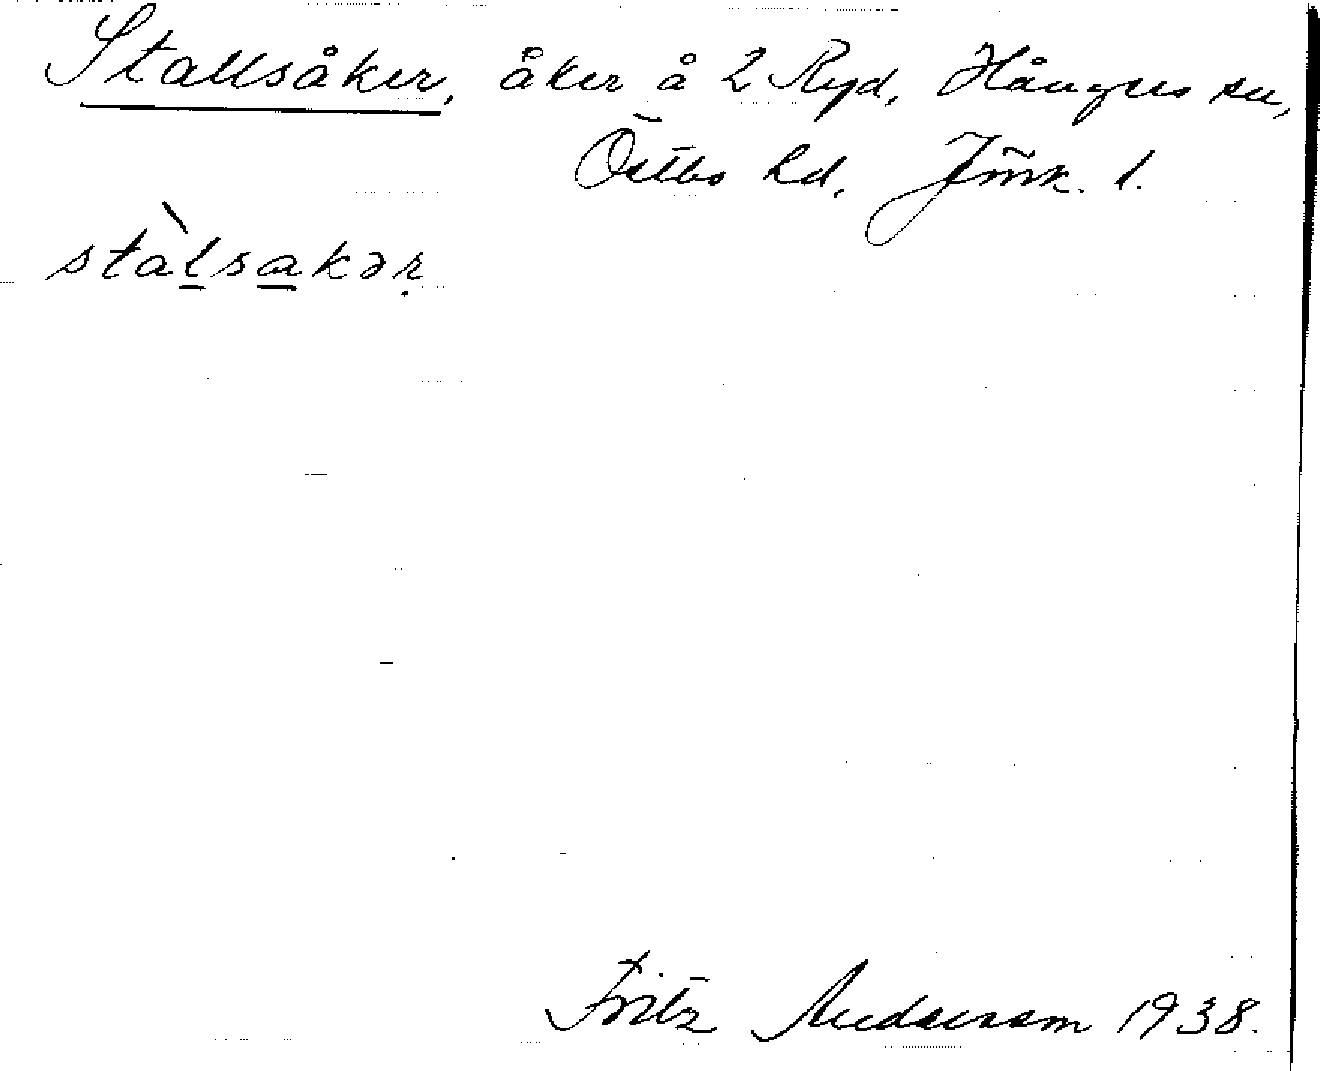 Stallsåker, åker å 2 Ryd, Hångers sn,
Östbo hd, Jönk. l.
stàlsakər
Fritz Andersson 1938.